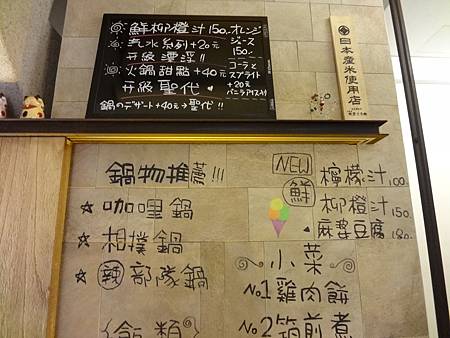 鮮柳橙汁150. オレンジ
ジュース
150.
汽水系列+20元
升級漂浮!!
コーラと
スプライト
+20元
バニラアイス付
火鍋甜點+40元
升級聖代
鍋のデザート+40元→聖代!!
日本産米使用店
鍋物推薦!!!
☆ 咖哩鍋
☆ 相撲鍋
☆ 辣部隊鍋
飯類
NEW
鮮
檸檬汁100.
柳橙汁150.
麻婆豆腐180.
小菜
No.1雞肉餅
No.2筑前煮